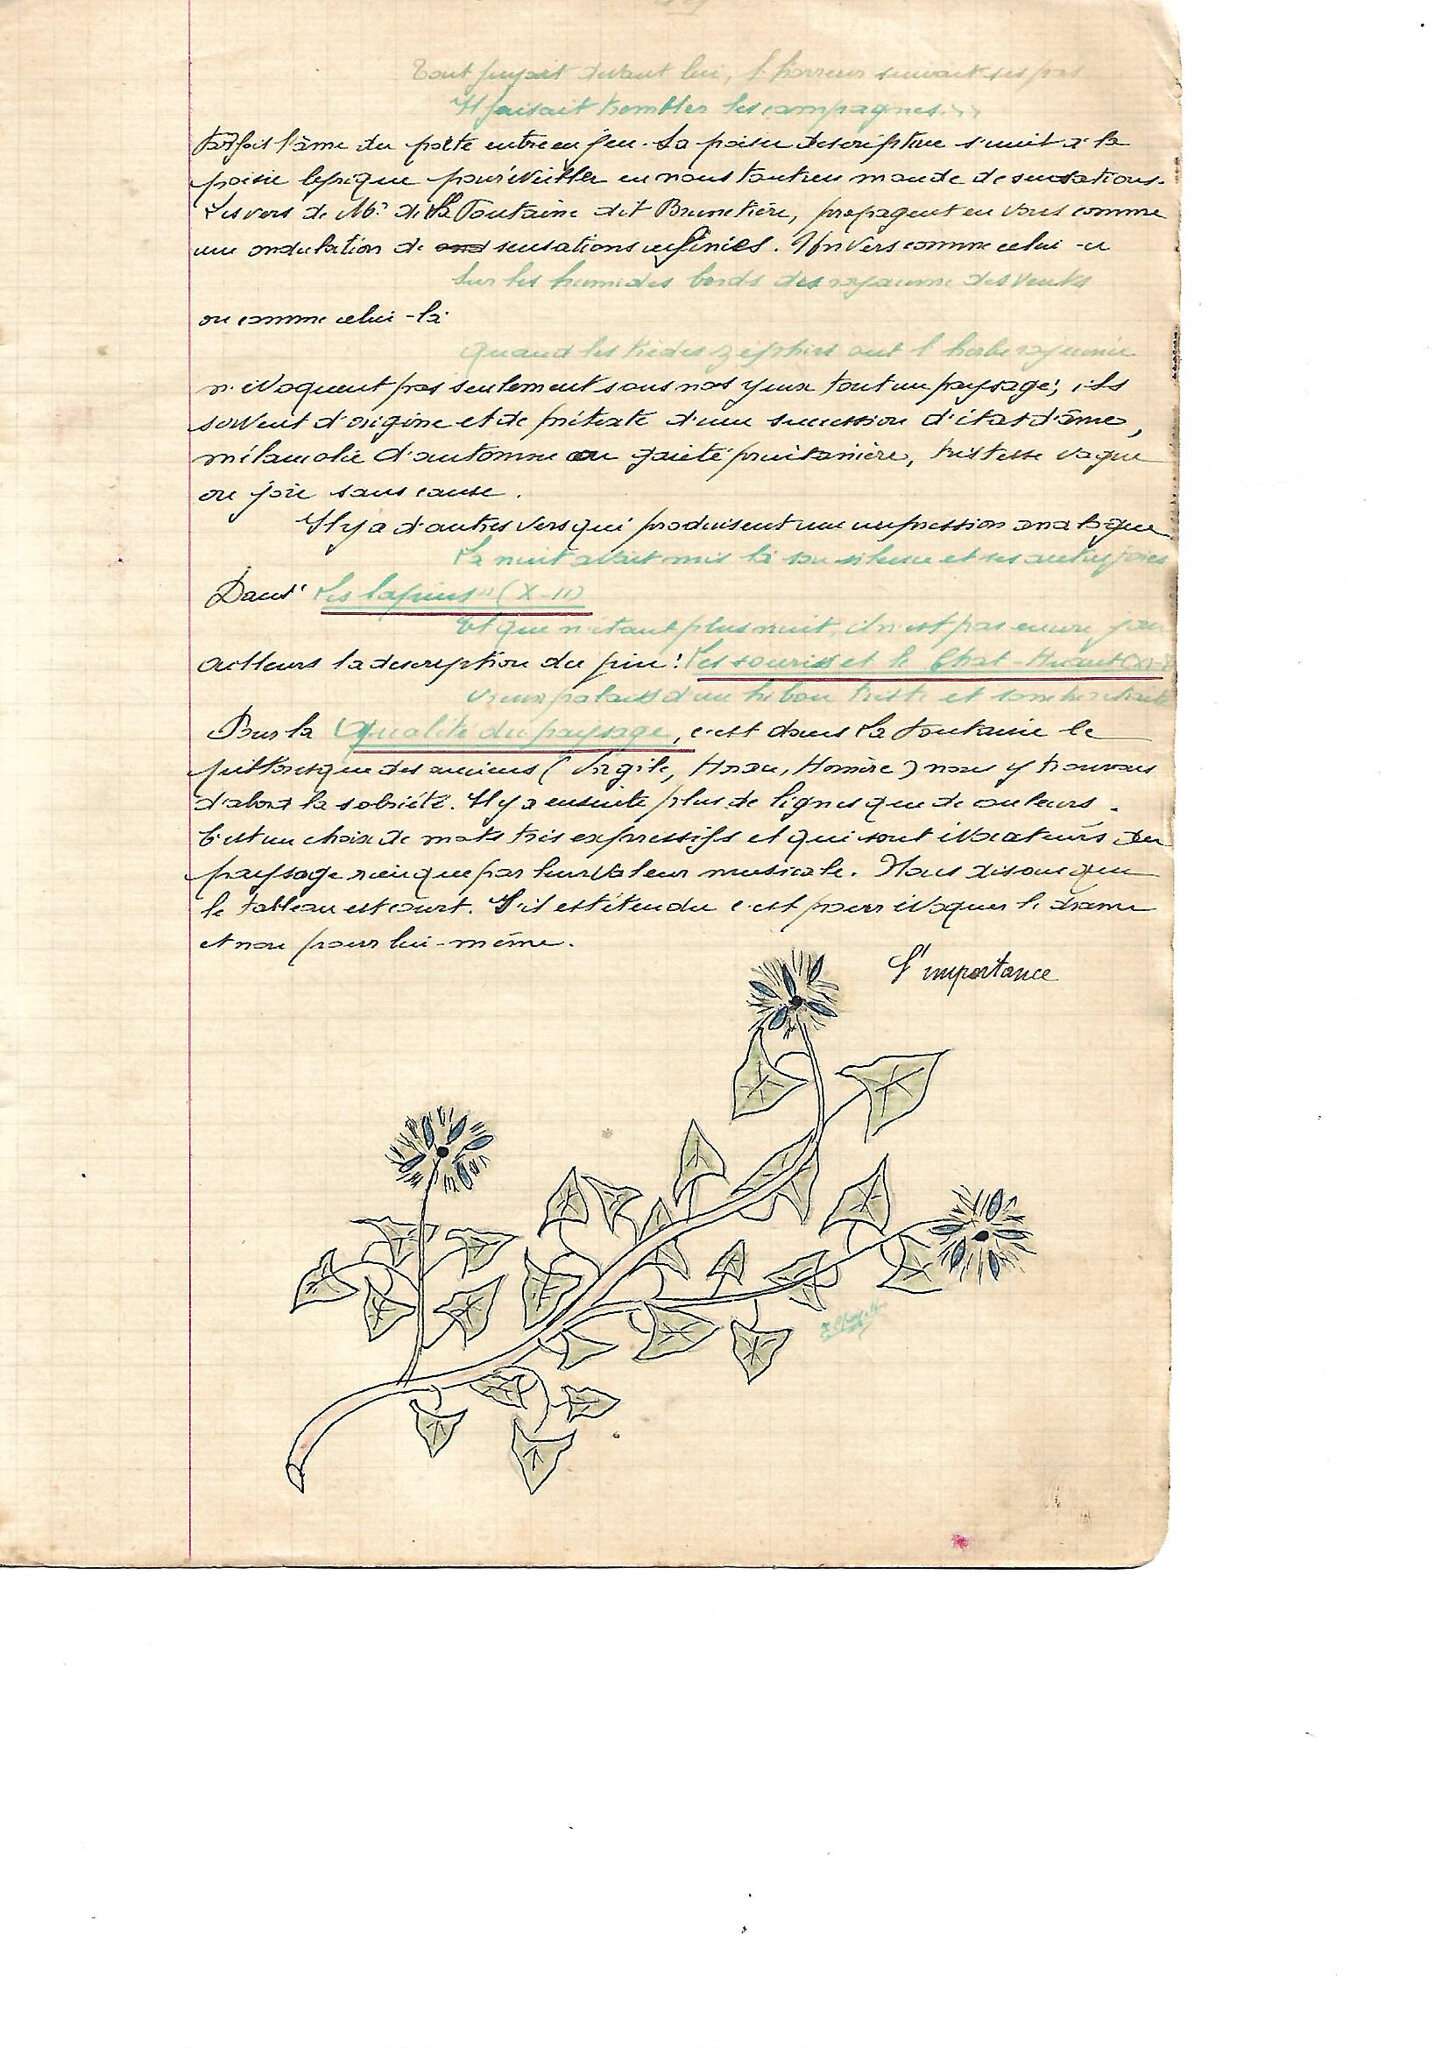 Tout fuyait devant lui, l'horreur suivait ses pas
Il faisait trembler les campagnes.
Parfois l'âme du poète entre en jeu. La poésie descriptive s'unit à la
poésie lyrique pour éveiller en nous tout un monde de sensations.
Les vers de Mr de La Fontaine dit Brunetière, propagent en vous comme
une ondulation de sensations infinies. Un vers comme celui-ci
Sur les humides bords des royaume des vents
ou comme celui-là
Quand les tièdes zéphirs ont l'herbe rajeunie
n'évoquent pas seulement sous nos yeux tout un paysage; ils
servent d'origine et de prétexte d'une succession d'états d'âme,
mélancolie d'automne ou gaieté printanière, tristesse vague
ou joie sans cause.
Il y a d'autres vers qui produisent une impression analogue
La nuit avait mis là son silence et ses
Dans "Les lapins" (X-
Et que n'étant plus nuit, il n'est pas encore jour
ailleurs la description du pin: Les souris et le Chat-Huant (XI-
Vieux palais d'un hibou triste et sombre retraite
Pour la Qualité du paysage, c'est dans La Fontaine le
pittoresque des anciens (Virgile, Horace, Homère) nous y trouvons
d'abord la sobriété. Il y a ensuite plus de lignes que de couleurs.
C'est un choix de mots très expressifs et qui sont évocateurs du
paysage rien que par leur valeur musicale. Nous disons que
le tableau est court. S'il est étendu c'est pour évoquer le drame
et non pour lui-même.
L'importance